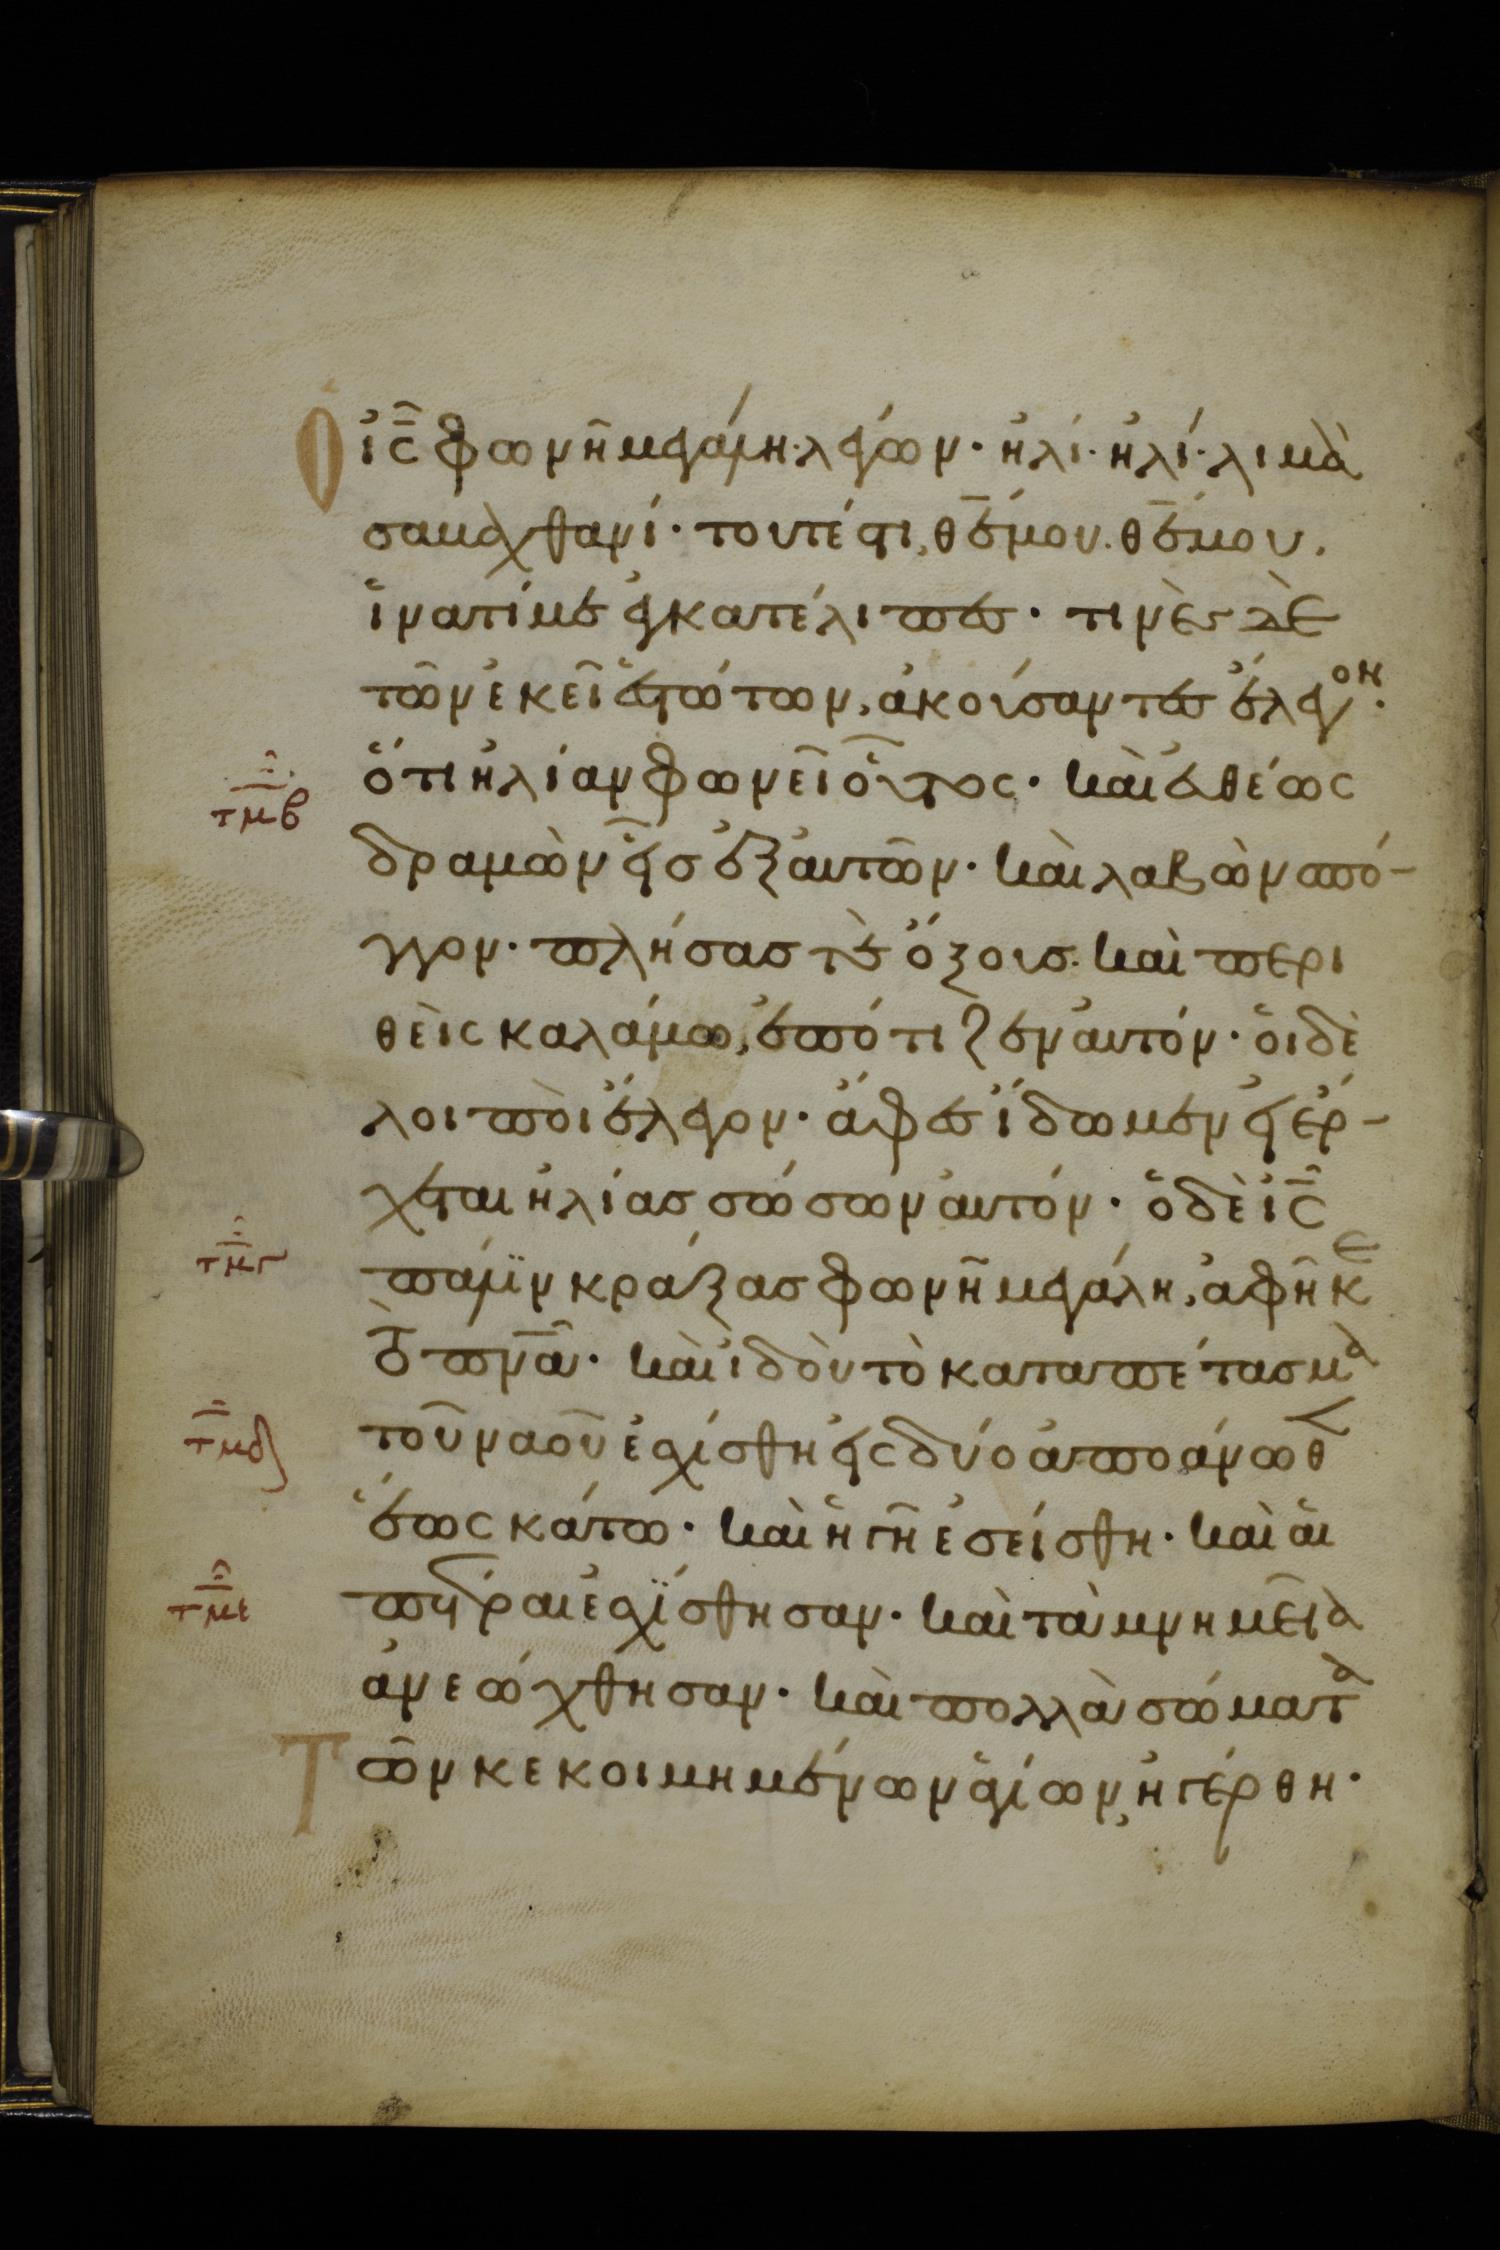 Ὁ ἰς̅ φωνῆ μεγάλη λέγων· ἠλί· ἠλί· λιμὰ
σαμαχθανί· τουτέστι, θε̅ μου. θε̅ μου.
ἱνατί με ἐγκατέλιπες· τινὲς δὲ
τῶν ἐκεῖ ἑστώτων, ἀκούσαντες ἔλεγον·
ὅτι ἠλίαν φωνεῖ οὗτος· καὶ εὐθέως
τμβ
δραμὼν εἷσ ἐξ αὐτῶν· καὶ λαβὼν σπό-
γγον· πλήσασ τὲ ὄξουσ· καὶ περι
θεὶς καλάμω, ἐπότιζεν αὐτόν· οἱ δὲ
λοιποὶ ἔλεγον· ἄφες ἴδωμεν εἰ ἔρ-
χεται ἠλίασ σώσων αὐτόν· ὁ δὲ ἰς̅
τμγ
πάλϊν κράξασ φωνῆ μεγάλη, ἀφῆκε
τὸ πνα̅· καὶ ἰδοὺ τὸ καταπέτασμα
τμδ
τοῦ ναοῦ ἐσχίσθη εἰς δύο ἀπο ἄνωθεν
ἕως κάτω· καὶ ἡ γῆ ἐσείσθη· καὶ αἱ
τμε
πέτραι ἐσχΐσθησαν· καὶ τὰ μνημεῖα
ἀνεώχθησαν· καὶ πολλὰ σώματα
Τῶν κεκοιμημένων ἁγίων, ἠγέρθη·